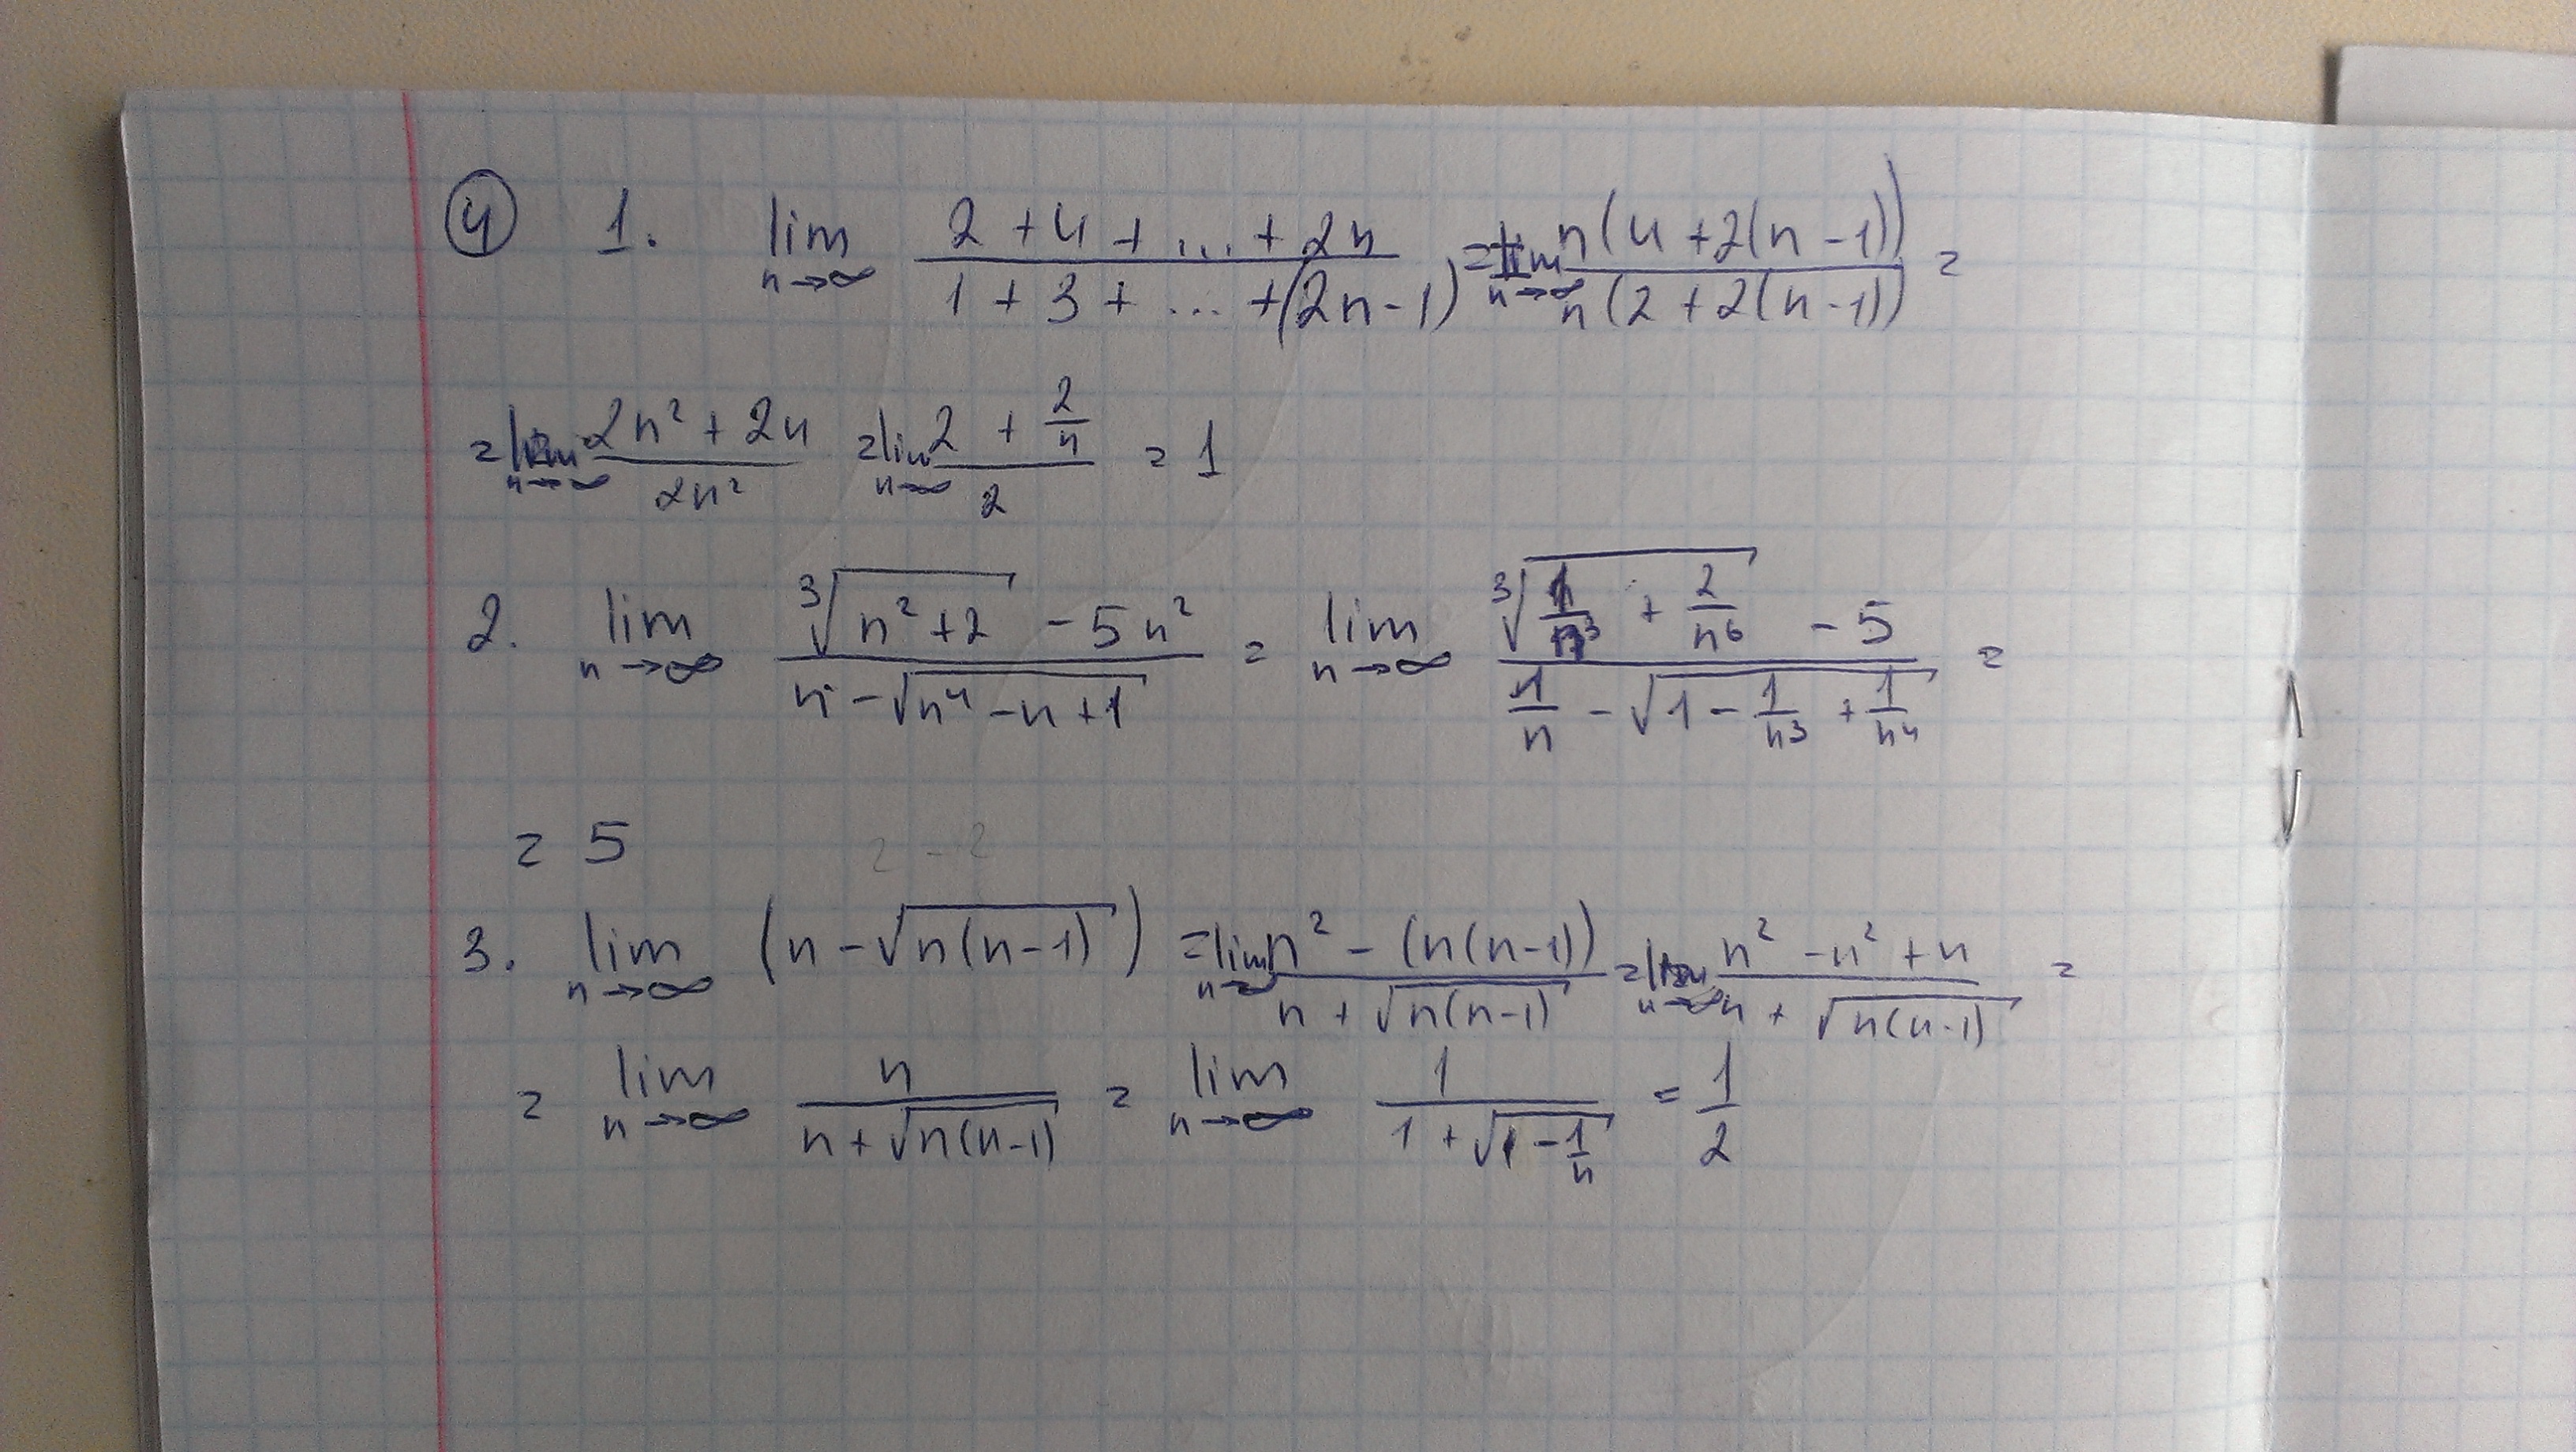 ④ 1. lim n→∞ (2+4+...+2n)/(1+3+...+(2n-1)) = lim n→∞ n(4+2(n-1))/n(2+2(n-1)) =
= lim n→∞ (2n²+2n)/(2n²) = lim n→∞ (2+2/n)/2 = 1
2. lim n→∞ (∛(n²+2) - 5n²)/(n-√(n⁴-n+1)) = lim n→∞ (∛(1/n³... + 2/n⁶) - 5)/(1/n - √(1 - 1/n³ + 1/n⁴)) =
= 5
3. lim n→∞ (n-√(n(n-1))) = lim n→∞ (n²-(n(n-1)))/(n+√(n(n-1))) = lim n→∞ (n²-n²+n)/(n+√(n(n-1))) =
= lim n→∞ n/(n+√(n(n-1))) = lim n→∞ 1/(1+√(1-1/n)) = 1/2